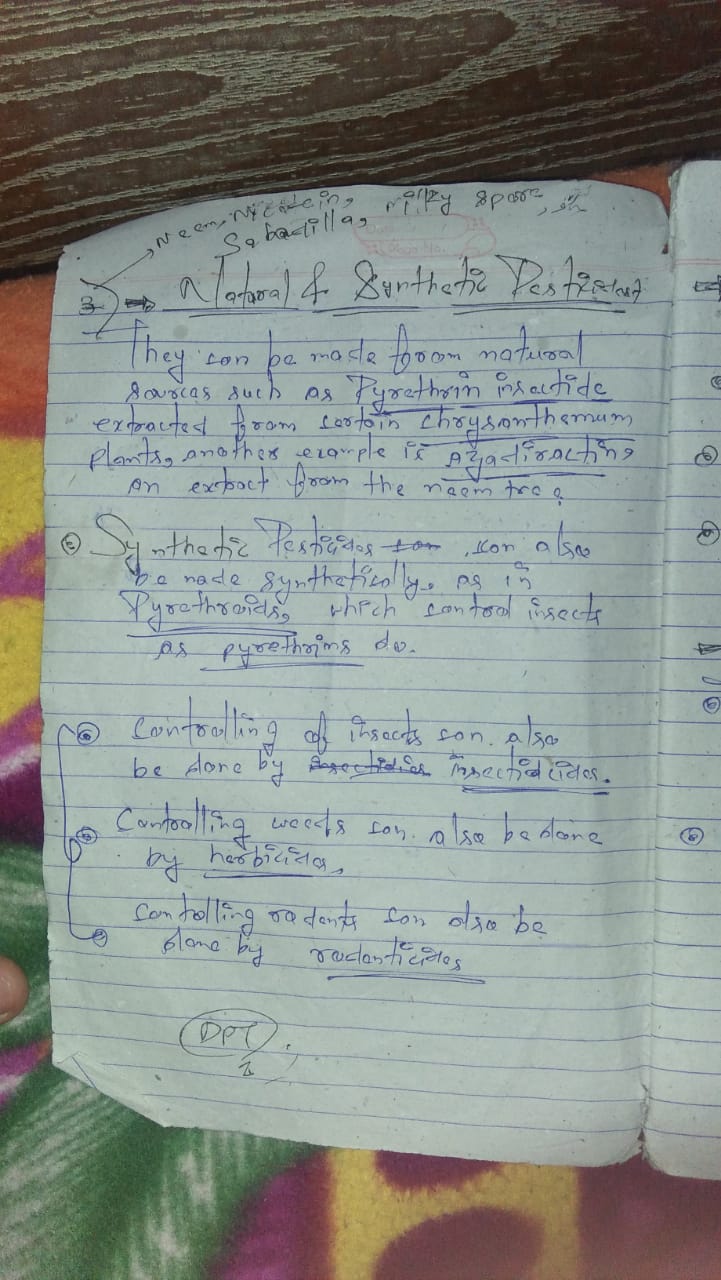 Neem, Nicotein, milky spore,
Sabadilla,
3 → Natural & Synthetic Pesticides
They can be made from natural
sources such as Pyrethrin insectide
extracted from certain chrysanthemum
plants, another example is Azadiractin,
an extract from the neem tree.
Synthetic Pesticides can also
be made synthetically. as in
Pyrethroids, which control insects
as pyrethrins do.
Controlling of insects can also
be done by insecticides insecticidcides.
Controlling weeds can also be done
by herbicides,
Controlling rodents can also be
done by rodenticides
DPT